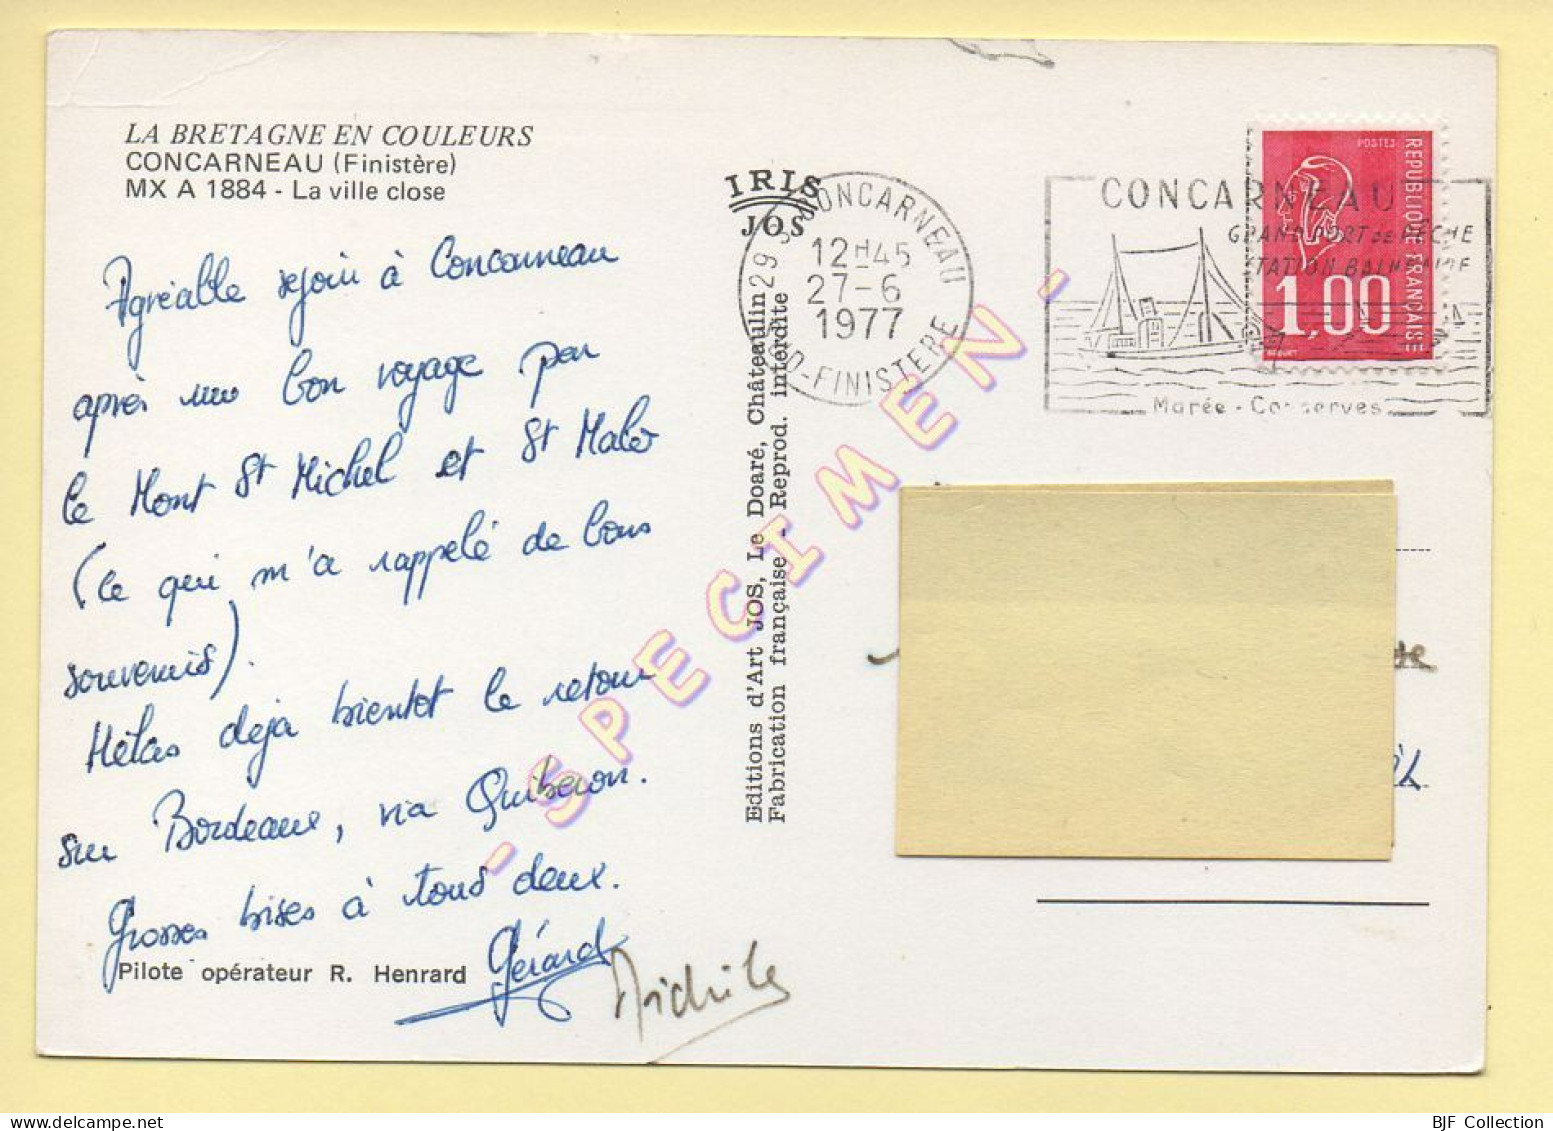 LA BRETAGNE EN COULEURS
CONCARNEAU (Finistère)
MX A 1884 - La ville close
Agréable séjour à Concarneau
après un bon voyage par
le Mont St Michel et St Malo
(ce qui m'a rappelé de bons
souvenirs).
Hélas déjà bientôt le retour
sur Bordeaux, via Quiberon.
Grosses bises à tous deux.
Gérard
Michèle
Pilote opérateur R. Henrard
IRIS
JOS
Editions d'Art JOS, Le Doaré, Châteaulin
Fabrication française - Reprod. interdite
- SPECIMEN -
29 S CONCARNEAU
12H45
27-6
1977
D-FINISTERE
CONCARNEAU
GRAND PORT DE PÊCHE
STATION BALNEAIRE
Marée - Conserves
POSTES
REPUBLIQUE FRANÇAISE
1,00
BEQUET
BJF Collection